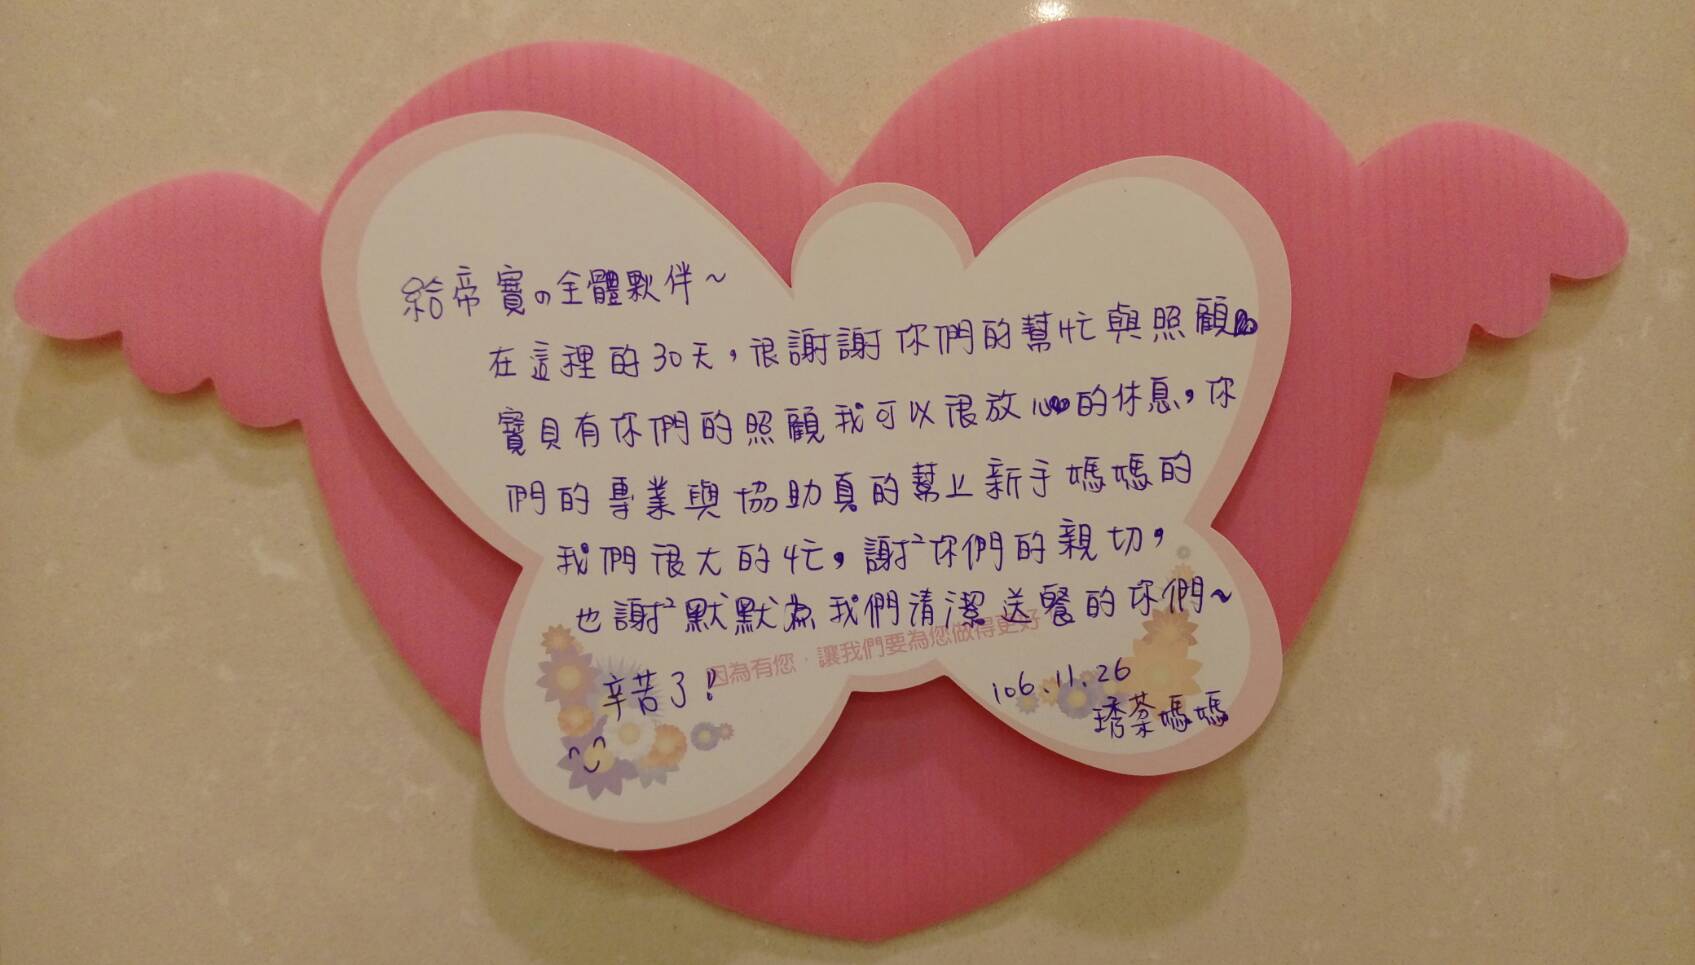 給帝寶の全體夥伴~
在這裡的30天,很謝謝你們的幫忙與照顧
寶貝有你們的照顧我可以很放心的休息,你
們的專業與協助真的幫上新手媽媽的
我們很大的忙,謝²你們的親切,
也謝²默默為我們清潔送餐的你們~
因為有您,讓我們要為您做得更好
辛苦了!
106.11.26
琇棻媽媽